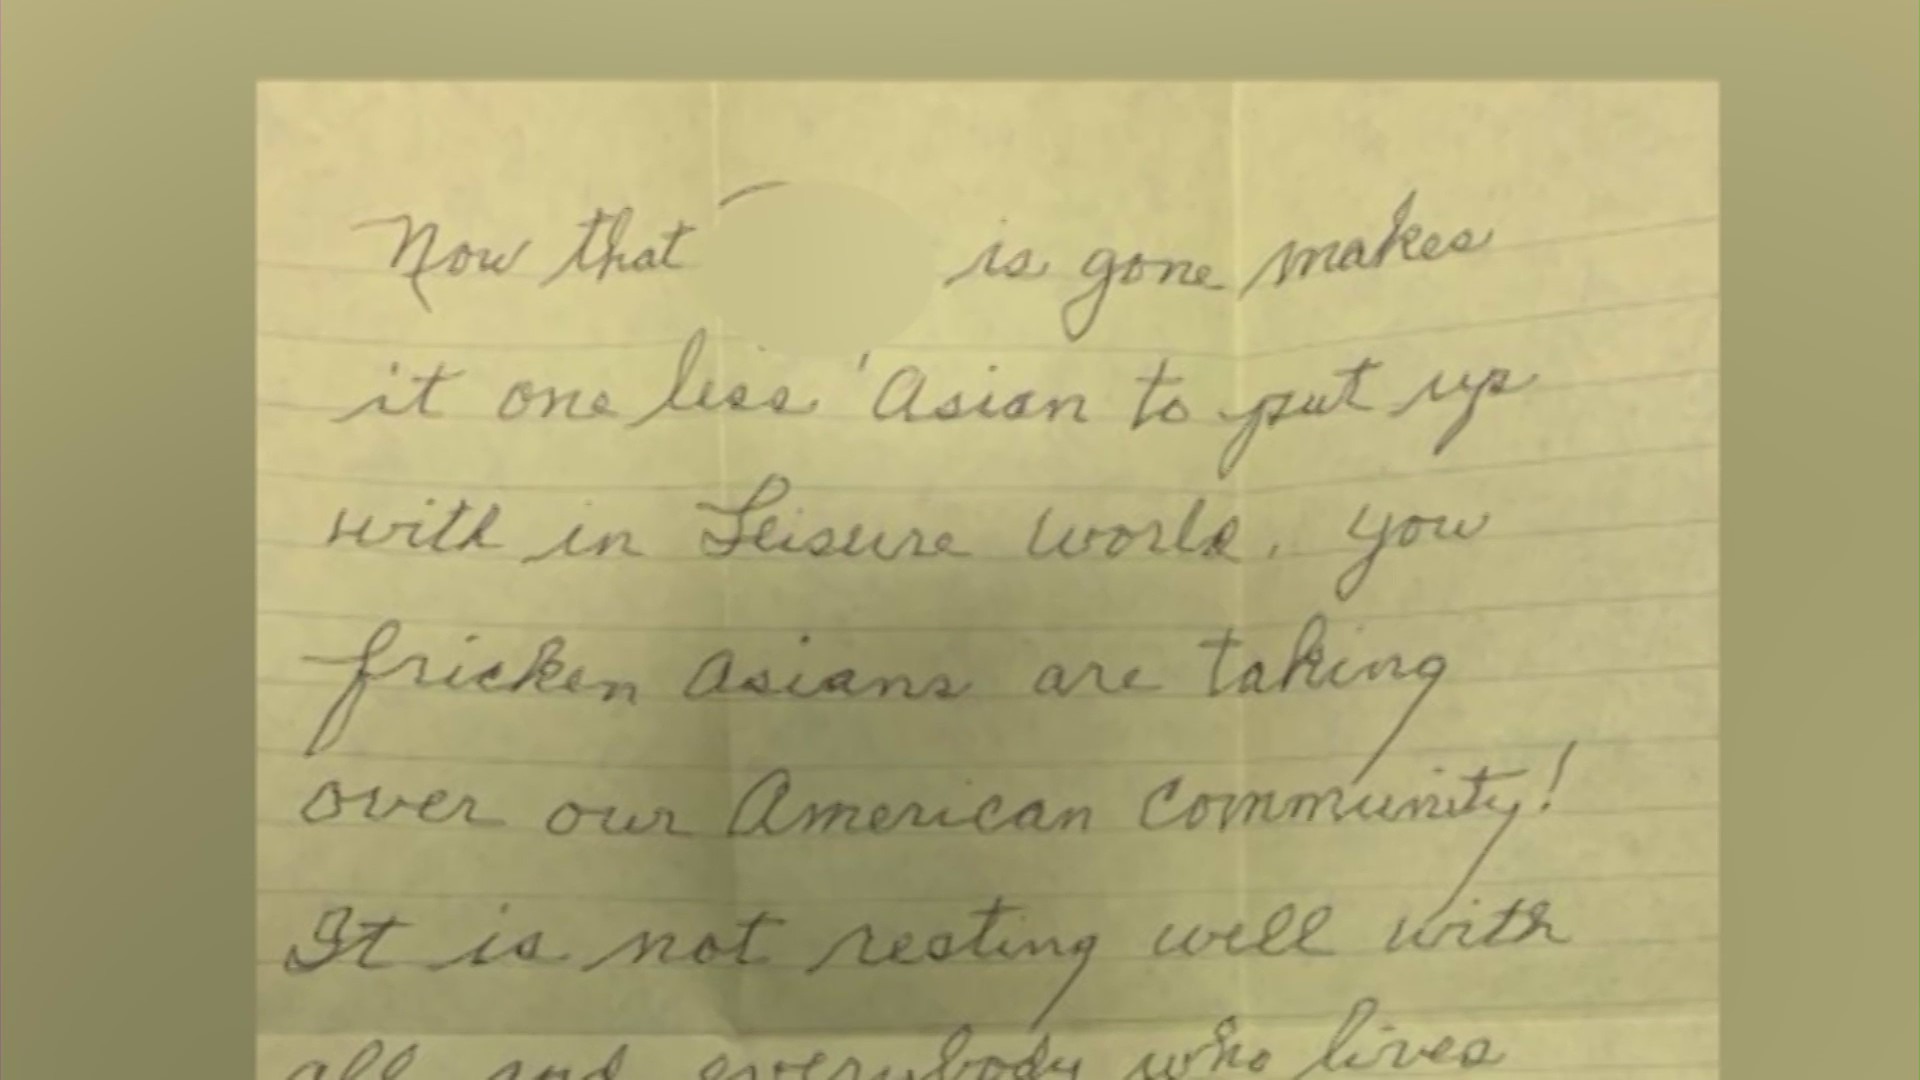 Now that is gone makes
it one less Asian to put up
with in Leisure World. You
fricken Asians are taking
over our American Community!
It is not resting well with
all and everybody who lives